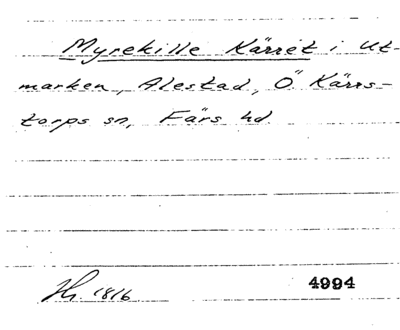 Myrekille Kärret i Ut-
marken, Alestad, Ö. Kärrs-
torps sn, Färs hd.
Hy. 1816 4994